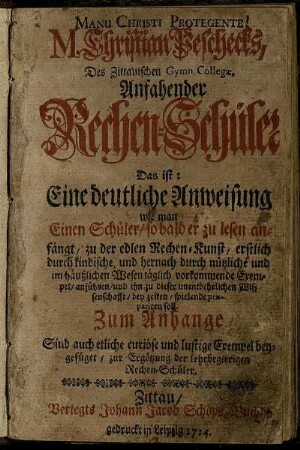 MANU CHRISTI PROTEGENTE!
M. Christian Peschecks,
Des Zittauischen Gymn. Collegæ,
Anfahender
Rechen-Schüler
Das ist:
Eine deutliche Anweisung
wie man
Einen Schüler/ so bald er zu lesen an-
fängt/ zu der edlen Rechen-Kunst/ erstlich
durch kindische, und hernach durch nützliche und
im häußlichen Wesen täglich vorkommende Exem-
pel/ anführen/ und ihn zu dieser unentbehrlichen Wis-
senschafft/ bey zeiten/ spielende præ-
pariren soll.
Zum Anhange
Sind auch etliche curiöse und lustige Exempel bey-
gefüget/ zur Ergötzung der lehrbegierigen
Rechen-Schüler.
Zittau/
Verlegts Johann Jacob Schöps, Buchh.
gedruckt in Leipzig 1714.